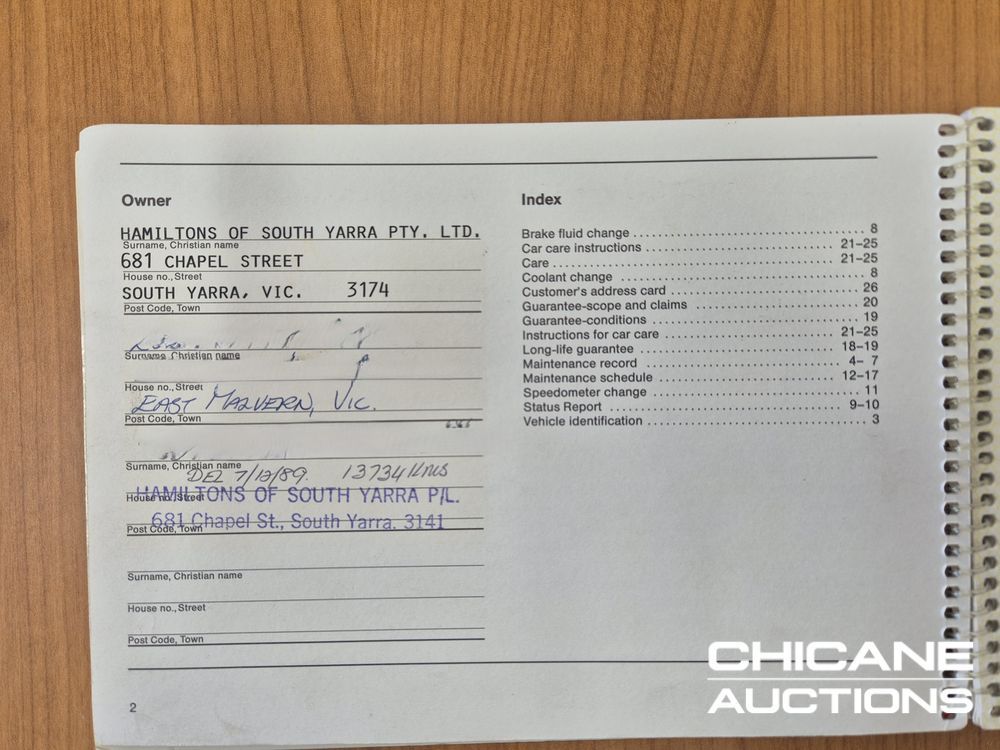 Owner
HAMILTONS OF SOUTH YARRA PTY. LTD.
Surname, Christian name
681 CHAPEL STREET
House no., Street
SOUTH YARRA, VIC. 3174
Post Code, Town
Surname Christian name
House no., Street
EAST MALVERN, VIC.
Post Code, Town
Surname, Christian name
DEL 7/12/89. 13734 Kms
House no., Street
HAMILTONS OF SOUTH YARRA P/L.
681 Chapel St., South Yarra. 3141
Post Code, Town
Surname, Christian name
House no., Street
Post Code, Town
2
Index
Brake fluid change ........ 8
Car care instructions ........ 21–25
Care ........ 21–25
Coolant change ........ 8
Customer's address card ........ 26
Guarantee-scope and claims ........ 20
Guarantee-conditions ........ 19
Instructions for car care ........ 21–25
Long-life guarantee ........ 18–19
Maintenance record ........ 4– 7
Maintenance schedule ........ 12–17
Speedometer change ........ 11
Status Report ........ 9–10
Vehicle identification ........ 3
CHICANE
AUCTIONS